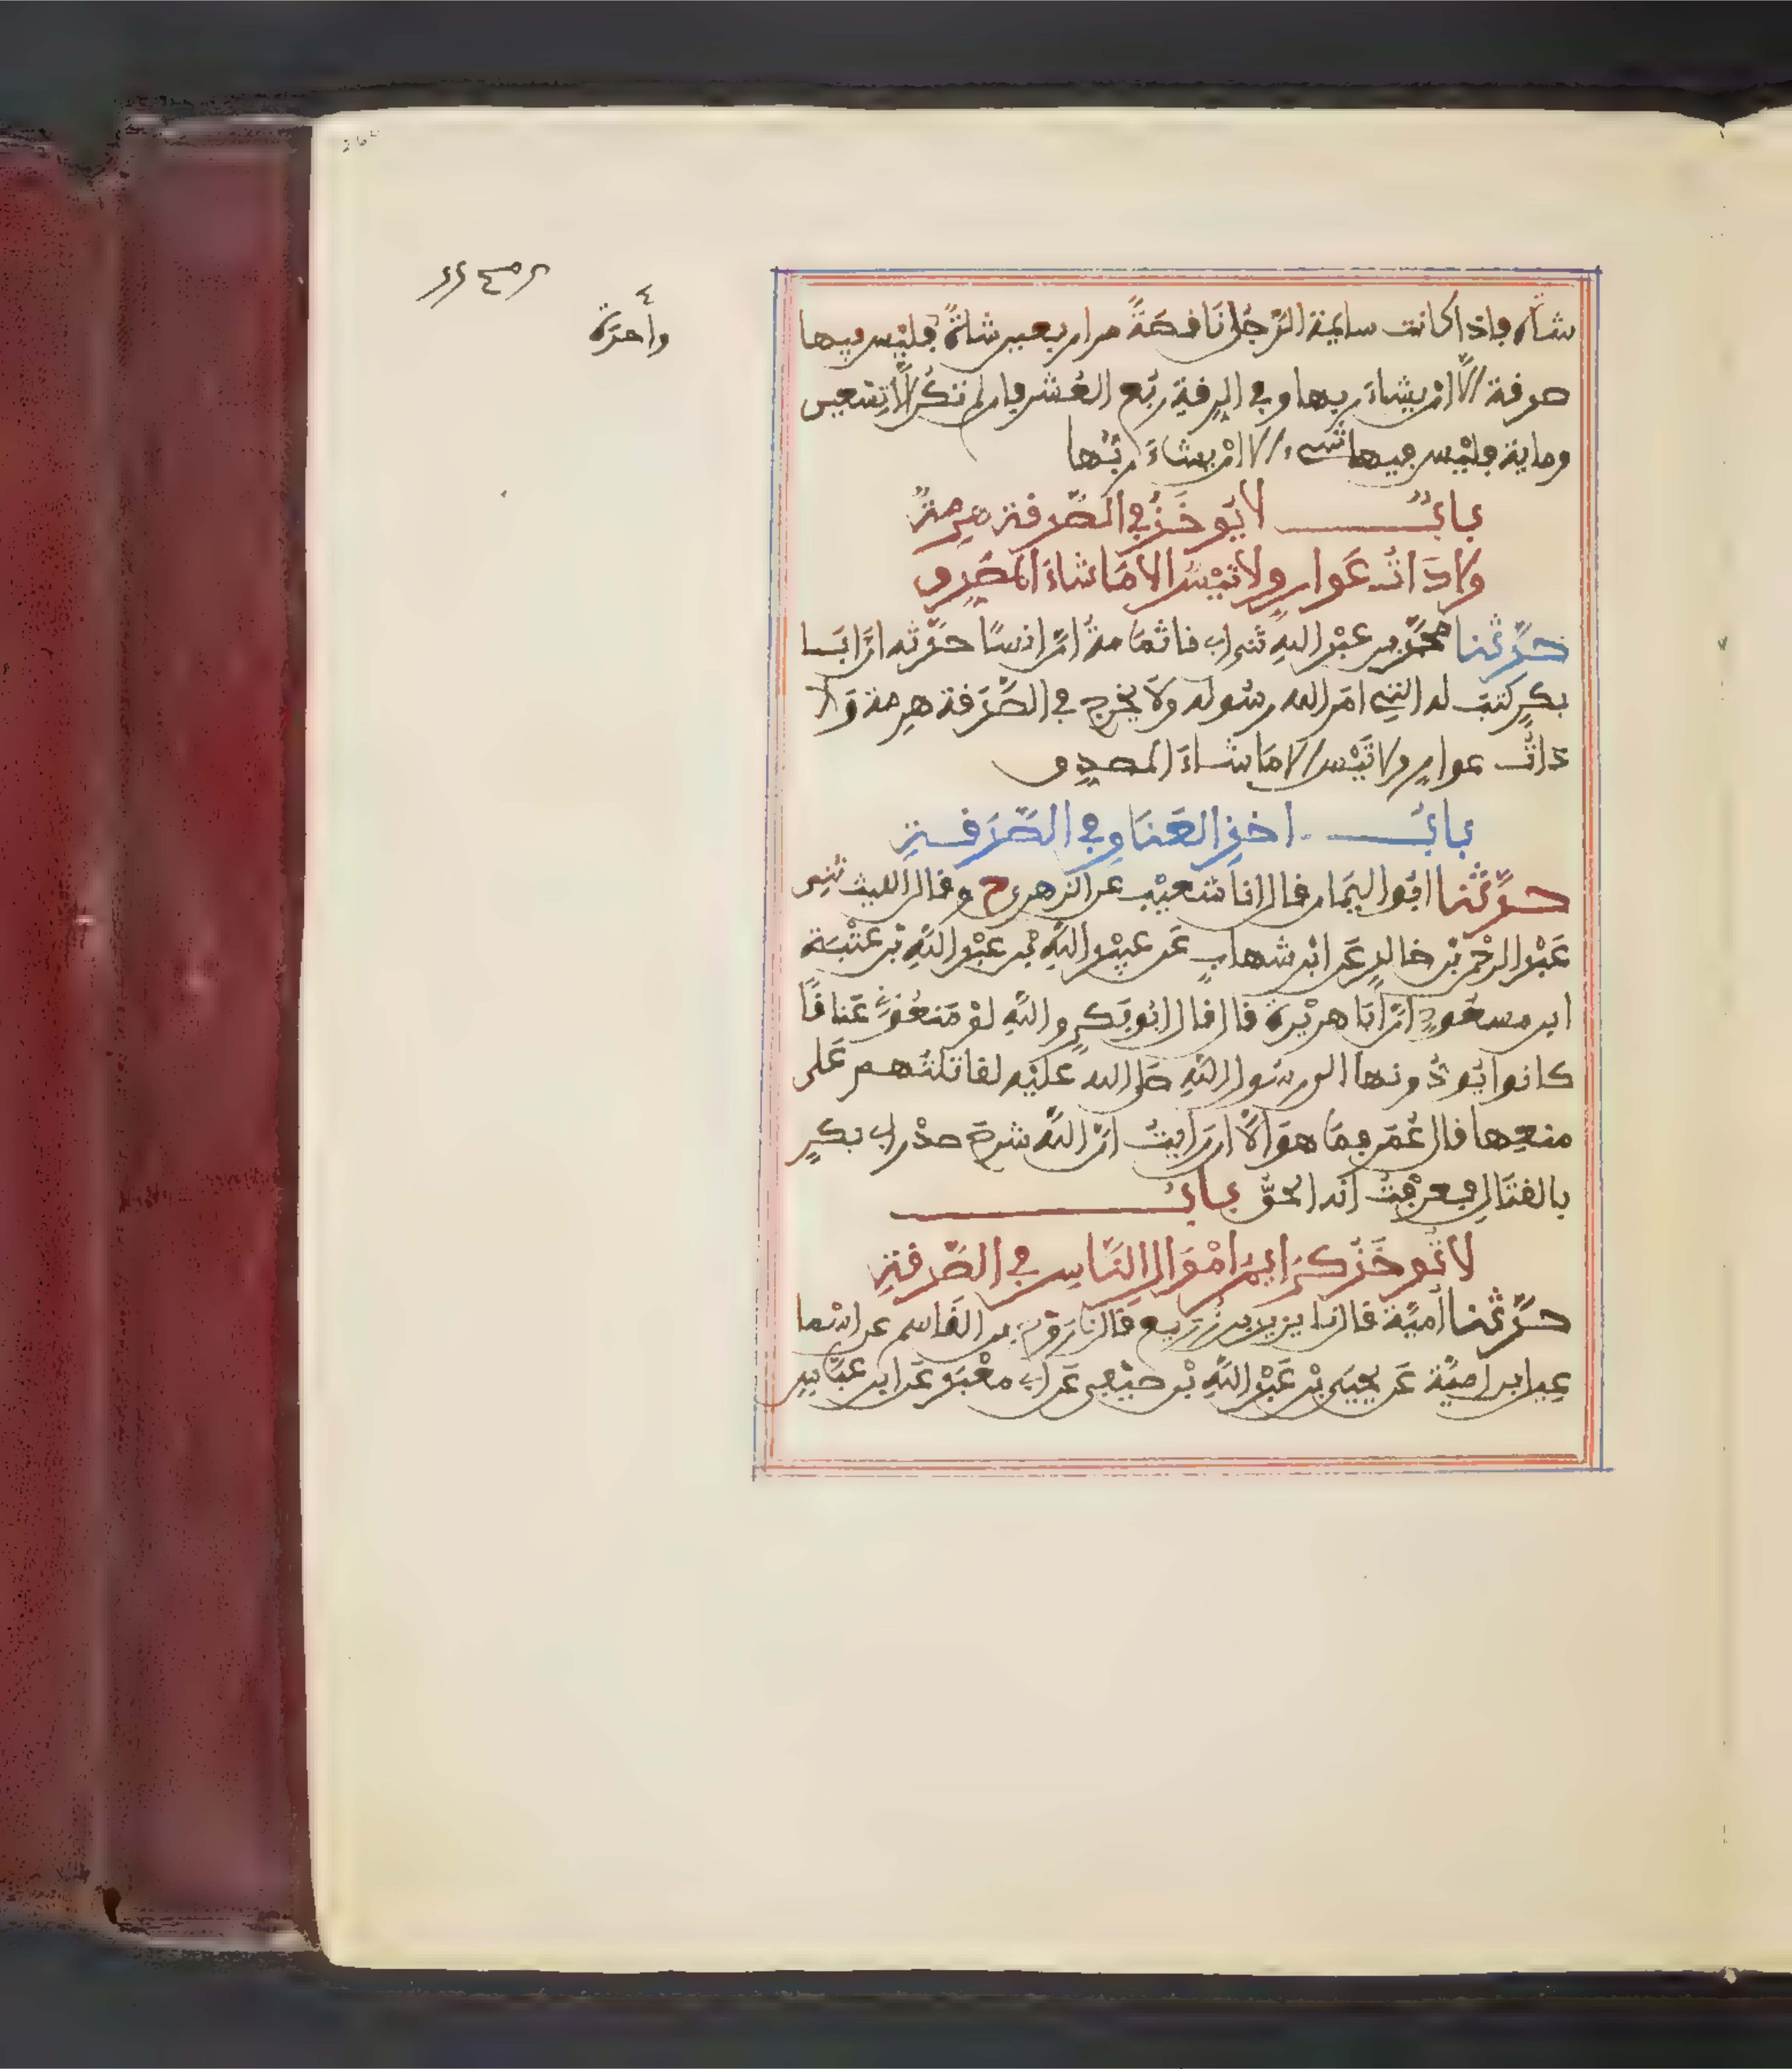 شاة فإذا كانت سايمة الرّجل ناقصةً من اربعين شاةً فليْس فيها
صدقة إلّا ان يشاءَ ربها وفي الرقةِ ربُع العُشر فإن لم تكُن إلّا تسْعين
وماية فليْس فيها شىء إلا انْ يشاءَ ربُّها
بابُ لا يُوخَذُ في الصَّدقة هرمةٌ
ولا ذاتُ عَوار ولا تَيْسٌ الا مَا شاءَ المصَدِق
حدَّثنا محمّد بن عبْد اللهِ ثنى ابى قال ثنى ثمَامةُ انّ انسًا حدّثه انّ ابَا
بكرٍ كتبَ له التي امَر الله رسُوله ولَا يخرج في الصَّدَقة هرِمة وَلا
ذاتُ عوارٍ ولا تَيْس إلا مَا شاءَ المصدِق
بابُ اخذِ العَنَاق في الصَّدَقةِ
حدَّثنا ابُو اليمَان قال انا شعيْب عن الزهرى ح وقال الليث ثنِى
عَبْد الرحْمن بْن خالدٍ عَن ابْن شهابٍ عَن عبيْد اللّهِ بْن عبْد اللّهِ بْن عتْبَة
ابن مسعُودٍ انّ أبَا هريْرة قال قال ابُو بَكرٍ واللّهِ لوْ مَنعُونِى عَناقًا
كانوا يُودُّونها الى رسُول اللّهِ صلى الله عليْه لقاتلتُهم عَلى
منعِها قال عُمَر فمَا هوَ إلَّا ان رَايتُ انّ اللّهَ شرحَ صدْر ابى بكرٍ
بالقتَالِ فعرفْتُ أنه الحقُّ بابُ
لا تُوخَذُ كرَايمُ امْوَالِ النَّاسِ في الصَّدقةِ
حدَّثنا أميّة قال نا يزيد بن زُريع قال نا رَوْح بن القَاسم عن اسْما
عِيل بن اميَّة عَن يحيَى بْن عَبْد اللّهِ بْن صَيْفِى عَن ابى معْبَدٍ عَن ابن عبّاسٍ
واحدَة